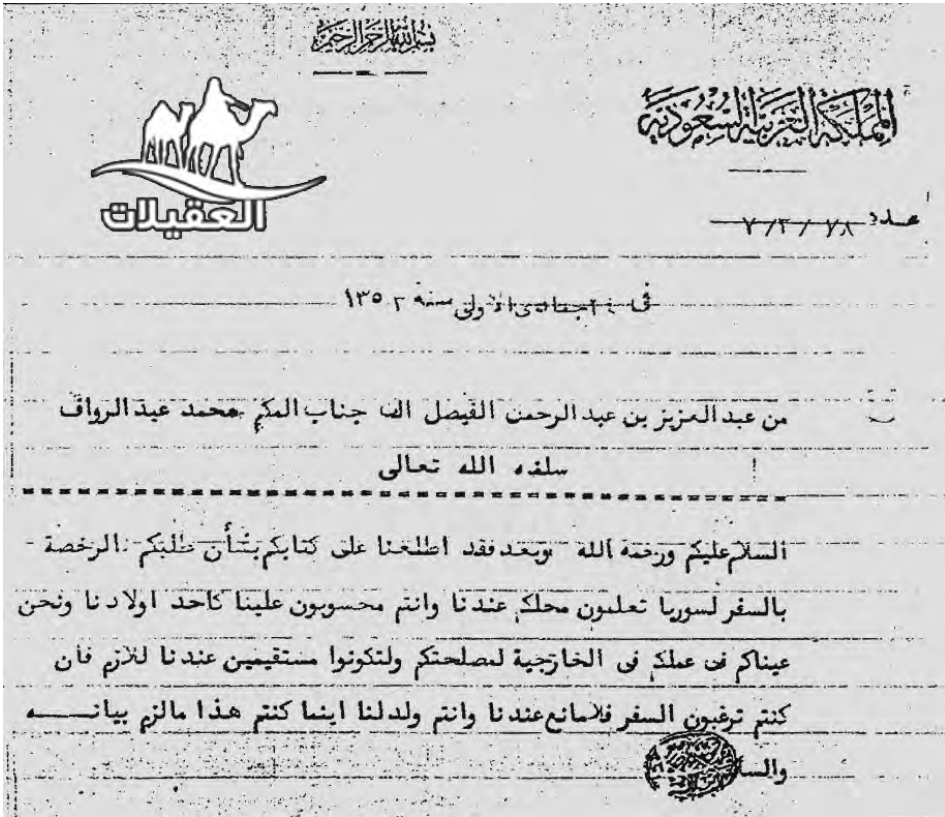 بسم الله الرحمن الرحيم
المملكة العربية السعودية
العقيلات
عدد ٧/٣/٧٨
في جمادى الاولى سنة ١٣٥٢
من عبد العزيز بن عبد الرحمن الفيصل الى جناب المكرم محمد عيد الرواف
سلمه الله تعالى
السلام عليكم ورحمة الله وبعد فقد اطلعنا على كتابكم بشأن طلبكم الرخصة
بالسفر لسوريا تعلمون محلكم عندنا وانتم محسوبون علينا كاحد اولادنا ونحن
عيناكم في عملكم في الخارجية لمصلحتكم ولتكونوا مستقيمين عندنا للازم فان
كنتم ترغبون السفر فلامانع عندنا وانتم ولد لنا اينما كنتم هذا مالزم بيانـــــه